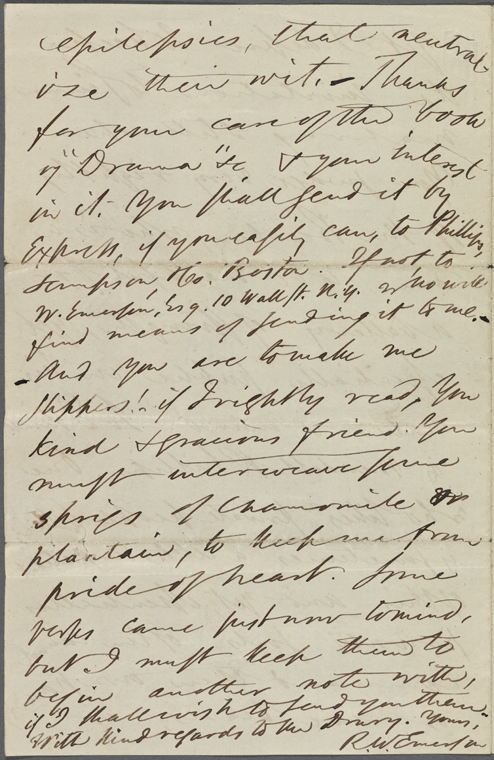 epilepsies, that neutral-
ize their wit. — Thanks
for your care of the book
of "Drama" &c & your interest
in it. You shall send it by
Express, if you easily can, to Phillips,
Sampson, & Co. Boston. If not to
W. Emerson, Esq. 10 Wall St. N.Y. who will
find means of sending it to me. —
— And you are to make me
slippers! if I rightly read, You
kind & gracious friend. You
must interweave some
sprigs of Chamomile or
plantain, to keep me from
pride of heart. Some
verses came just now to mind,
but I must keep them to
begin another note with,
if I shall wish to send you them.
With kind regards to the Drury. Yours,
R. W. Emerson